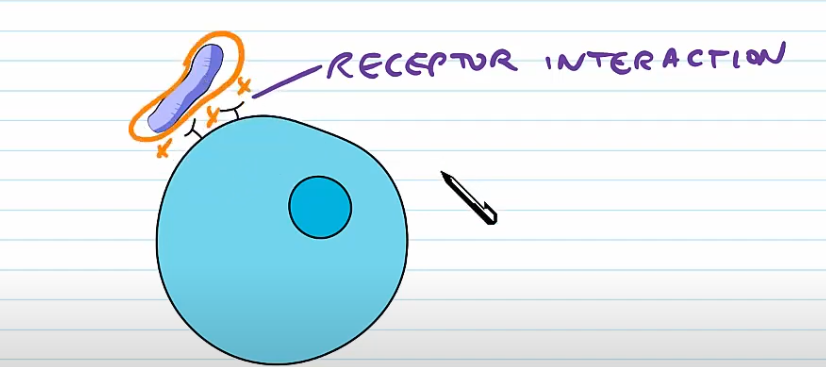 RECEPTOR INTERACTION